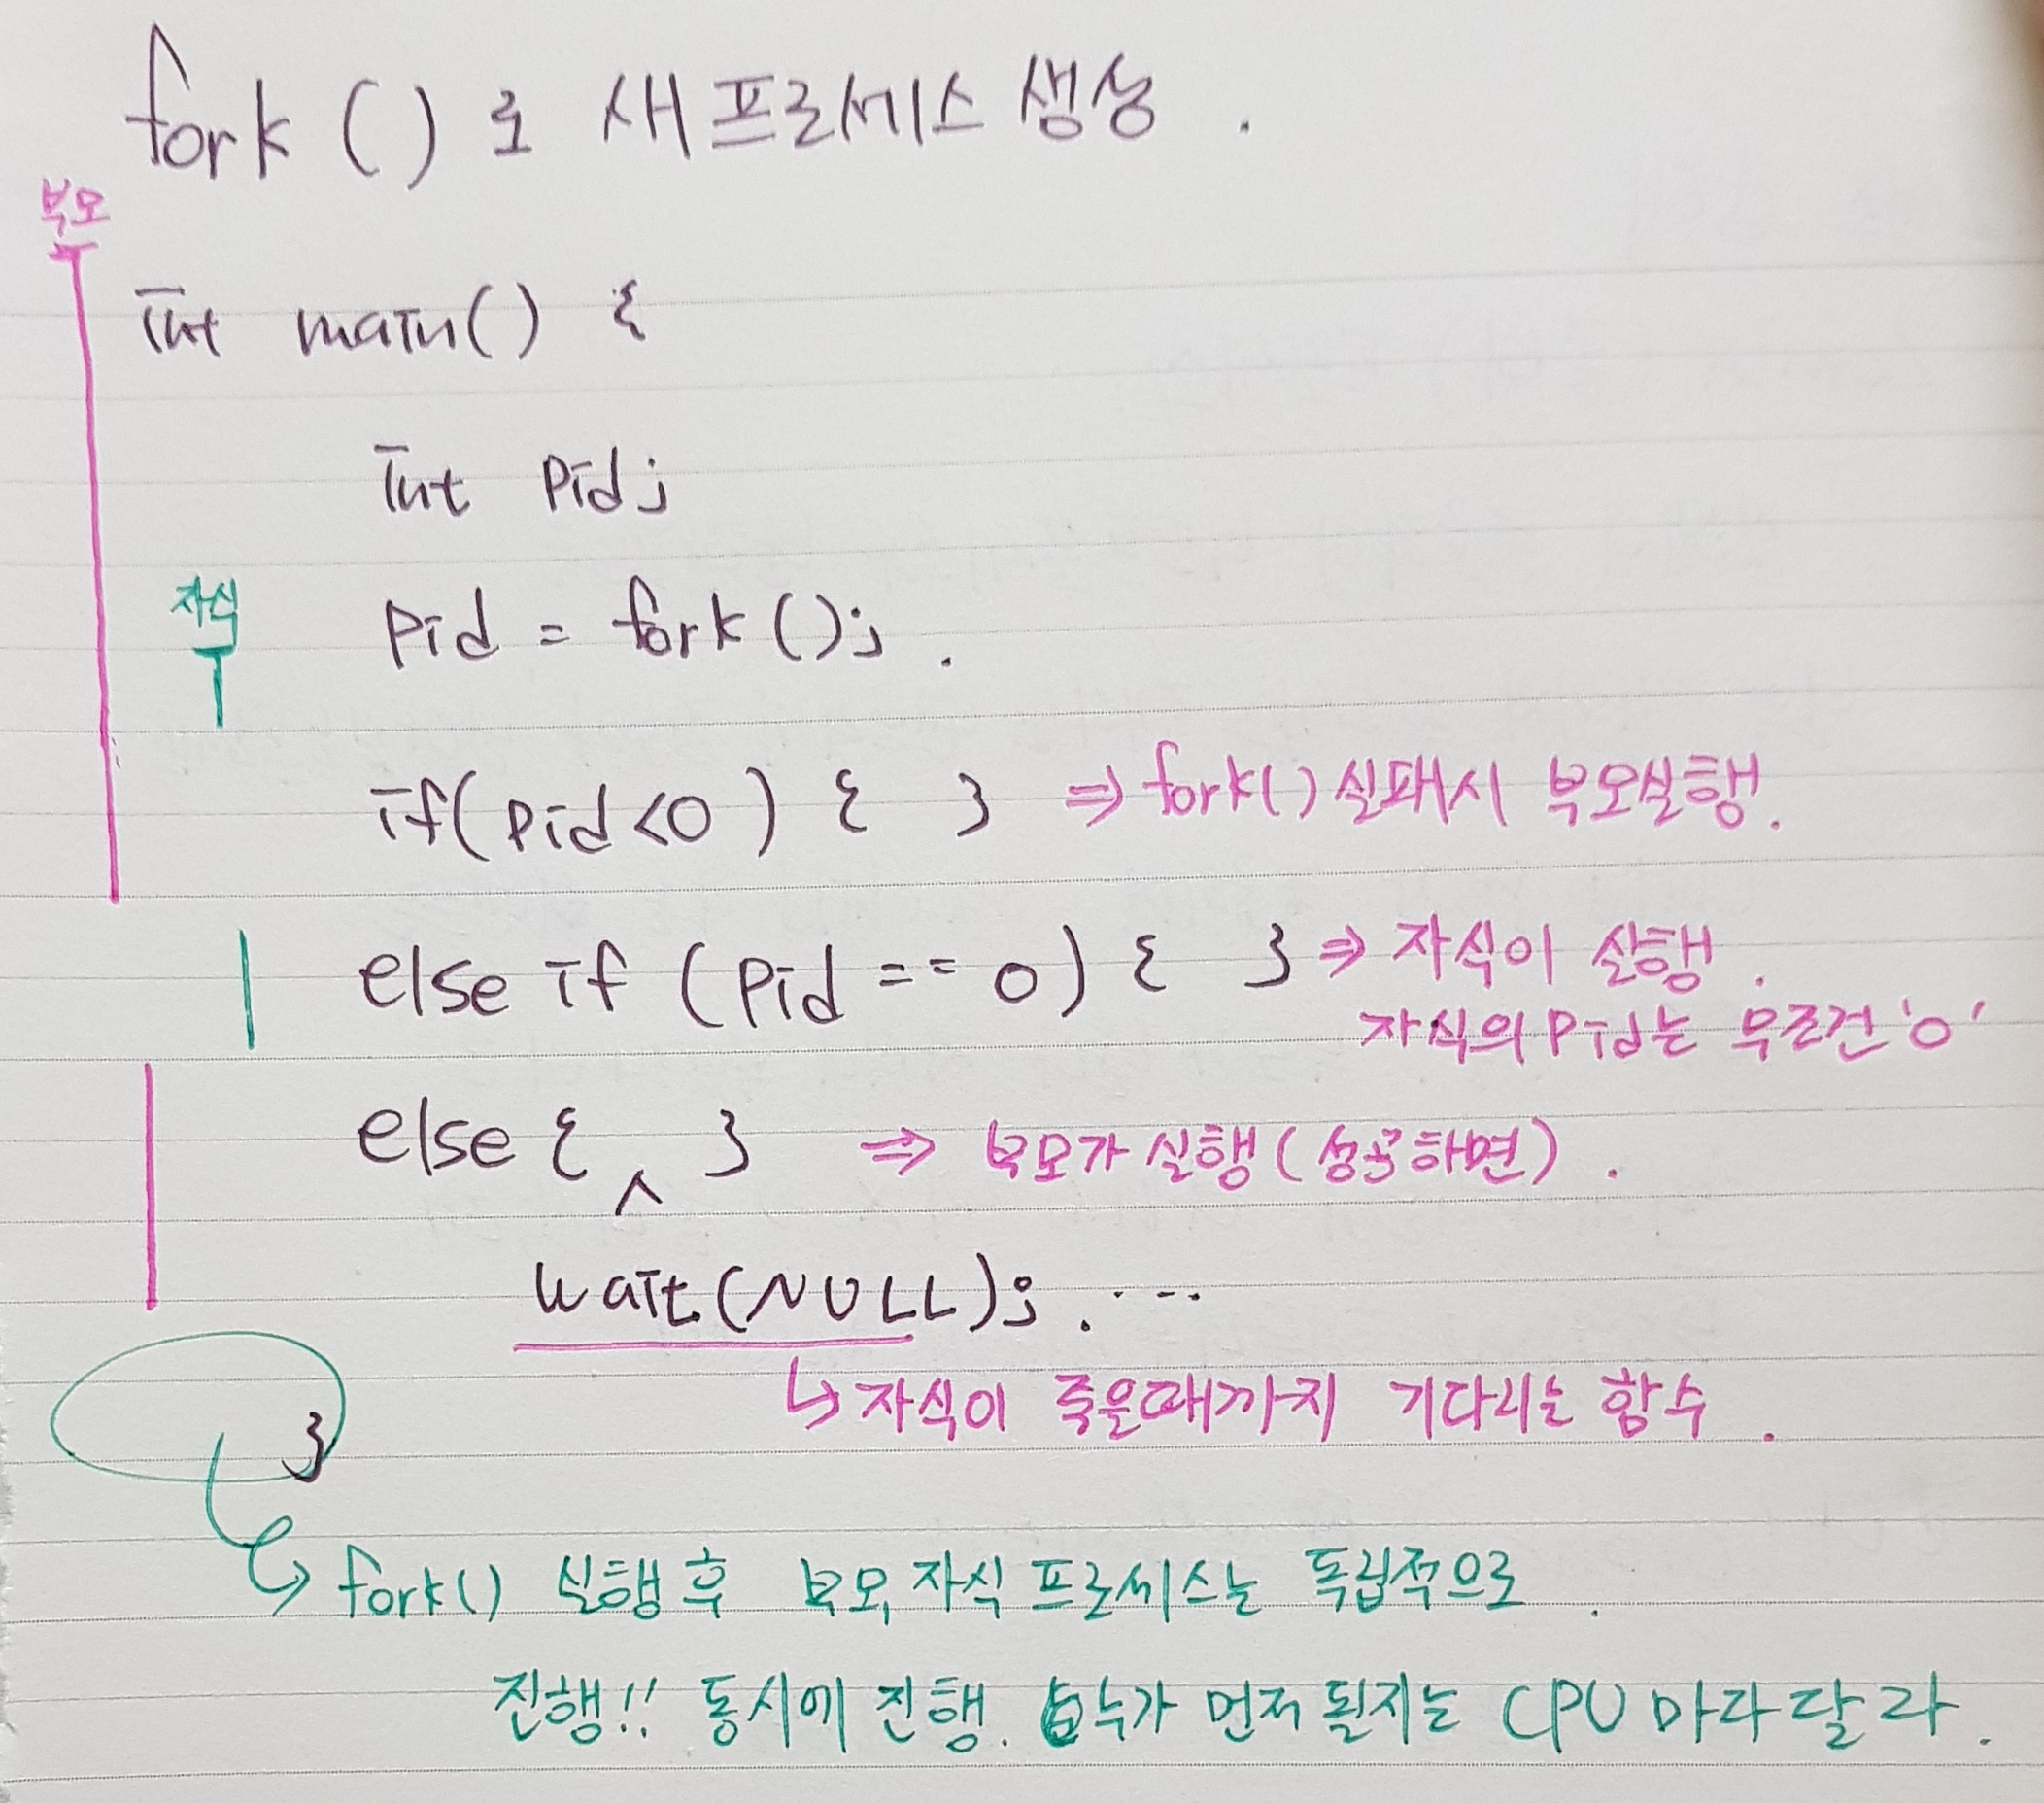 fork ()로 새프로세스 생성.
부모
int main() {
int pid;
자식
pid = fork();.
if(pid<0) { } ⇒ fork() 실패시 부모실행.
else if (pid == 0) { } ⇒ 자식이 실행.
자식의 pid는 무조건 '0'
else { ^ } ⇒ 부모가 실행 (성공하면).
wait(NULL); ....
↳ 자식이 죽을때까지 기다리는 함수.
}
↳ fork() 실행 후 부모, 자식 프로세스는 독립적으로.
진행!! 동시에 진행. 누가 먼저 될지는 CPU 마다 달라.